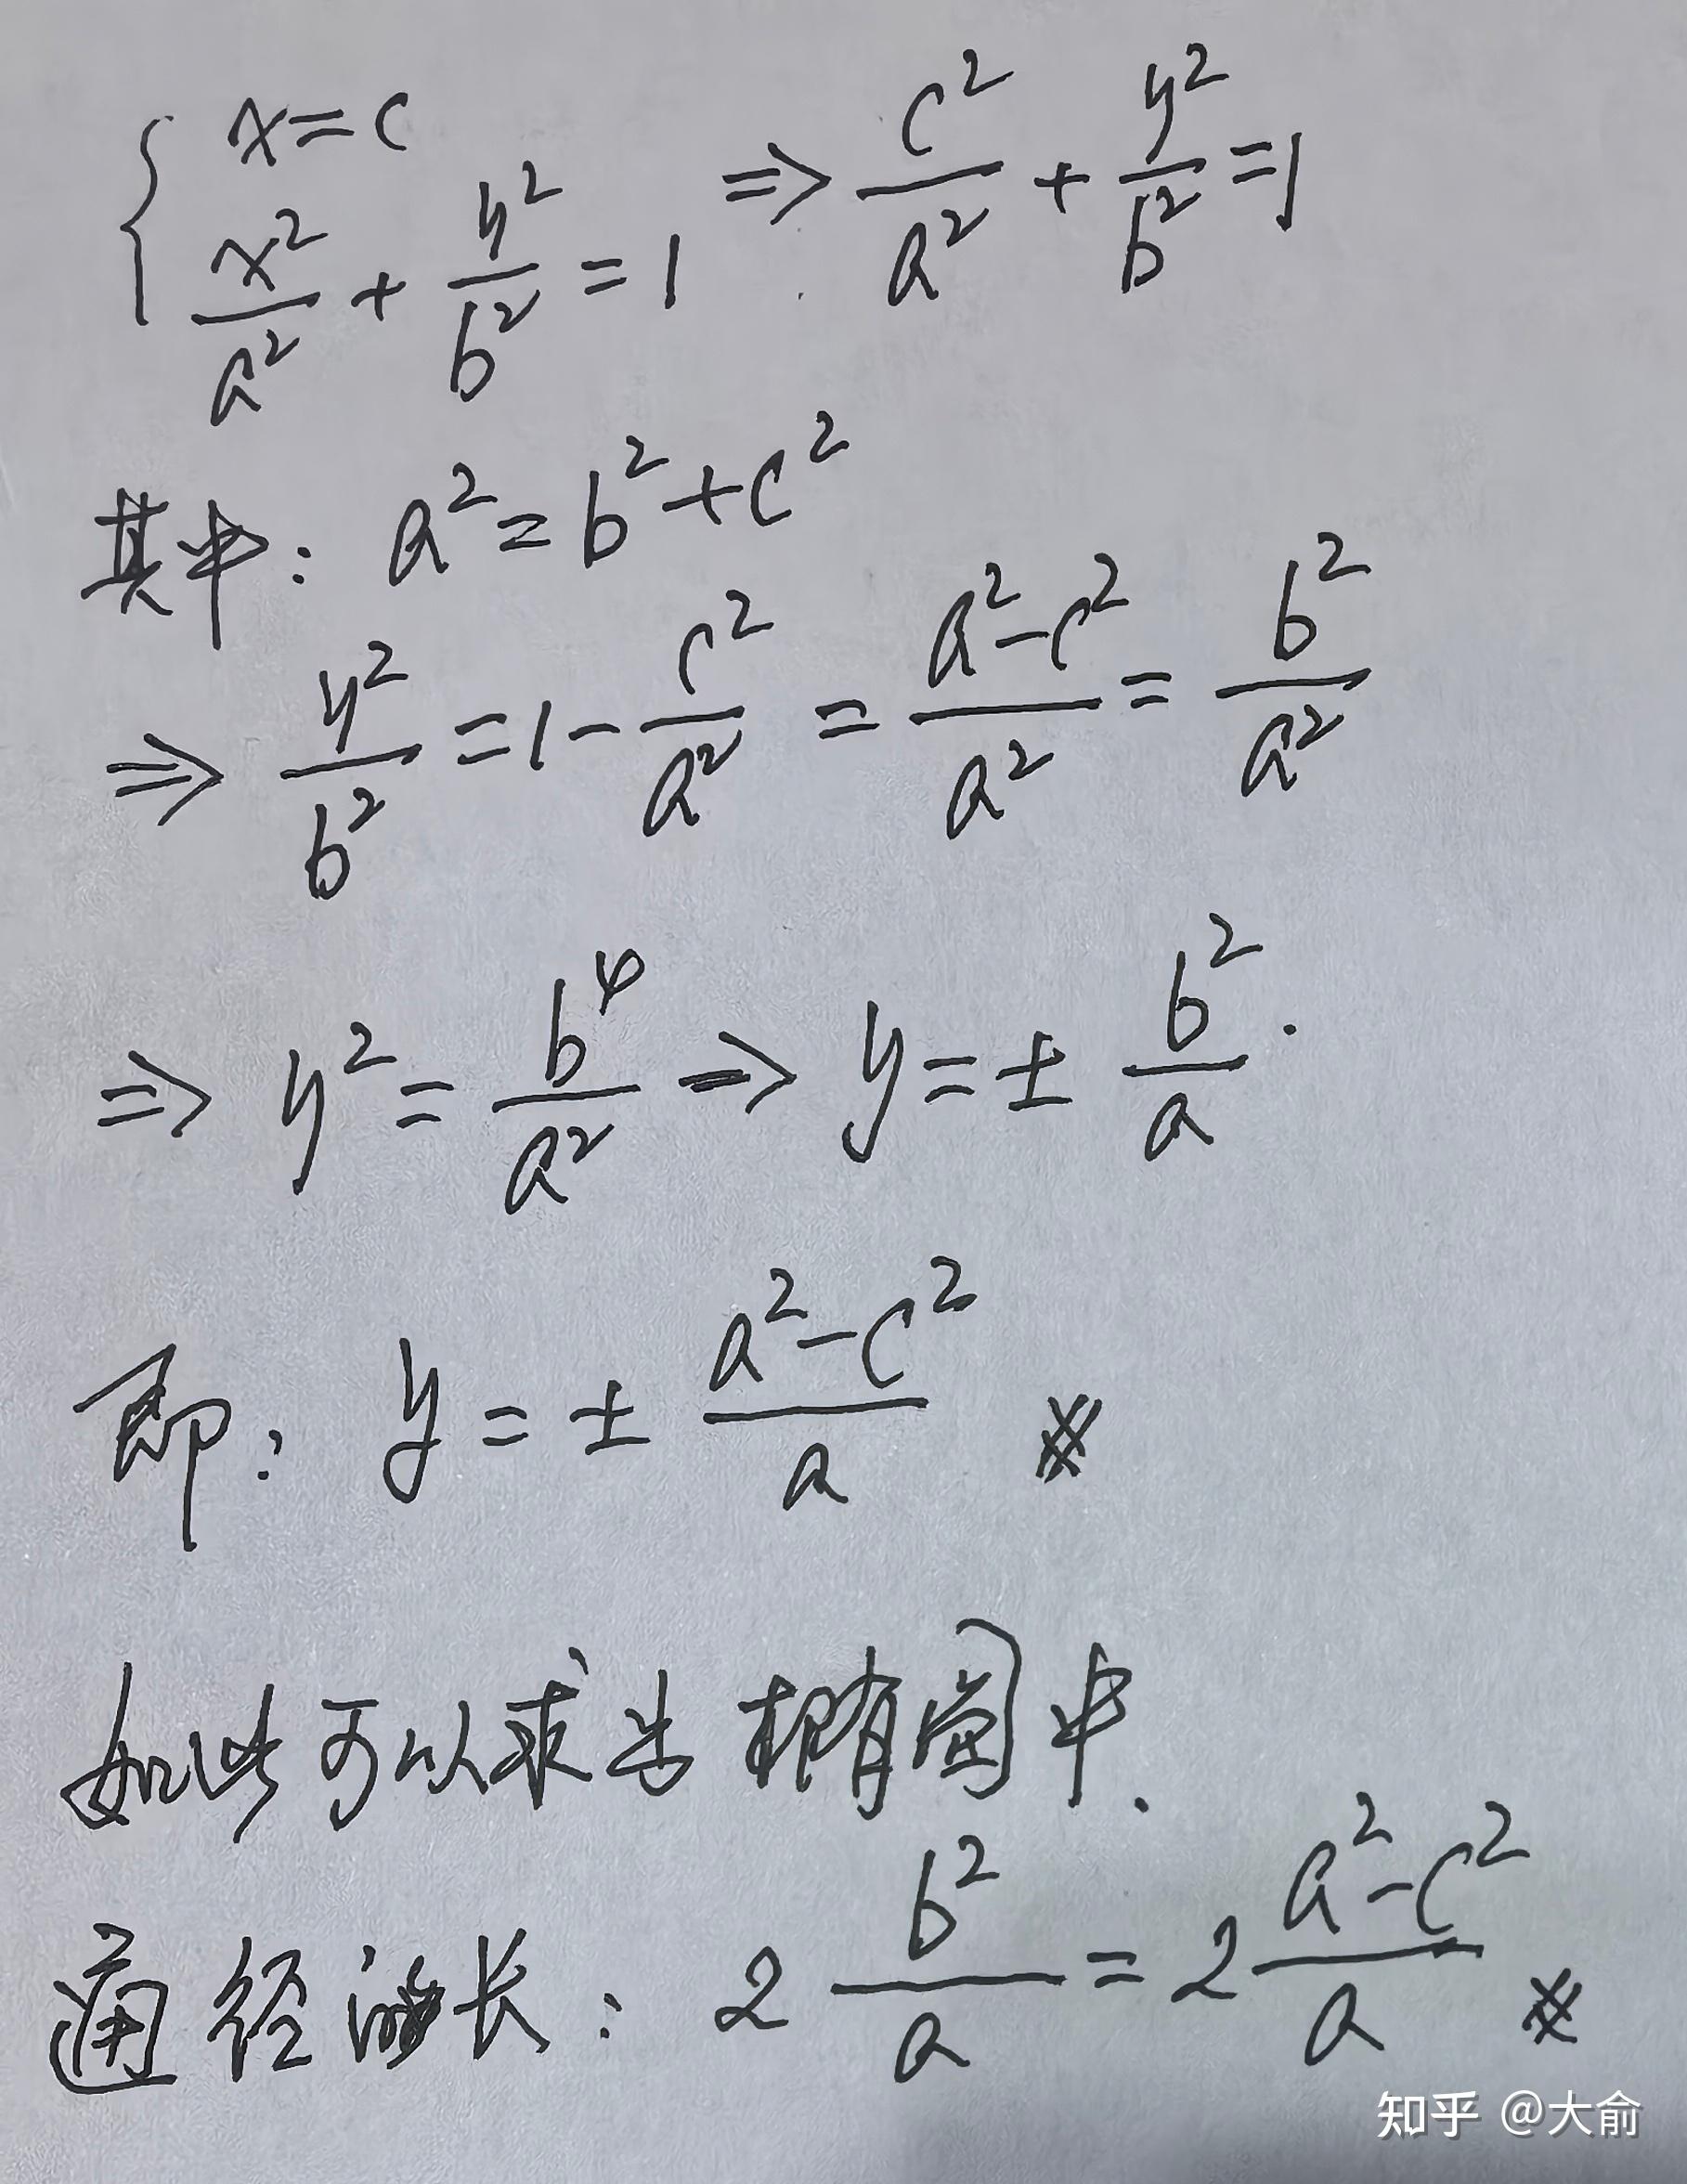 { x=c
x²/a² + y²/b² = 1 ⇒ c²/a² + y²/b² = 1
其中: a² = b² + c²
⇒ y²/b² = 1 - c²/a² = (a²-c²)/a² = b²/a²
⇒ y² = b⁴/a² ⇒ y = ± b²/a.
即: y = ± (a²-c²)/a ※
如此可以求出椭圆中.
通径的长: 2 b²/a = 2 (a²-c²)/a ※
知乎 @大俞